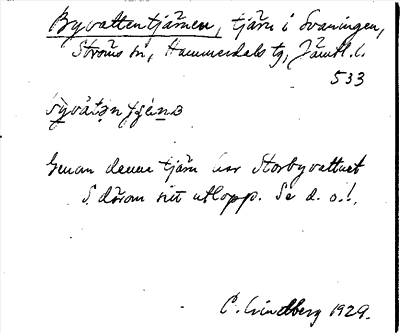 Byvattentjärnen, tjärn i Svaningen,
Ströms sn, Hammerdals tg, Jämtl. l.
533
Genom denna tjärn har Storbyvattnet
S. därom sitt utlopp. Se d. o.!
C. Lindberg 1929.